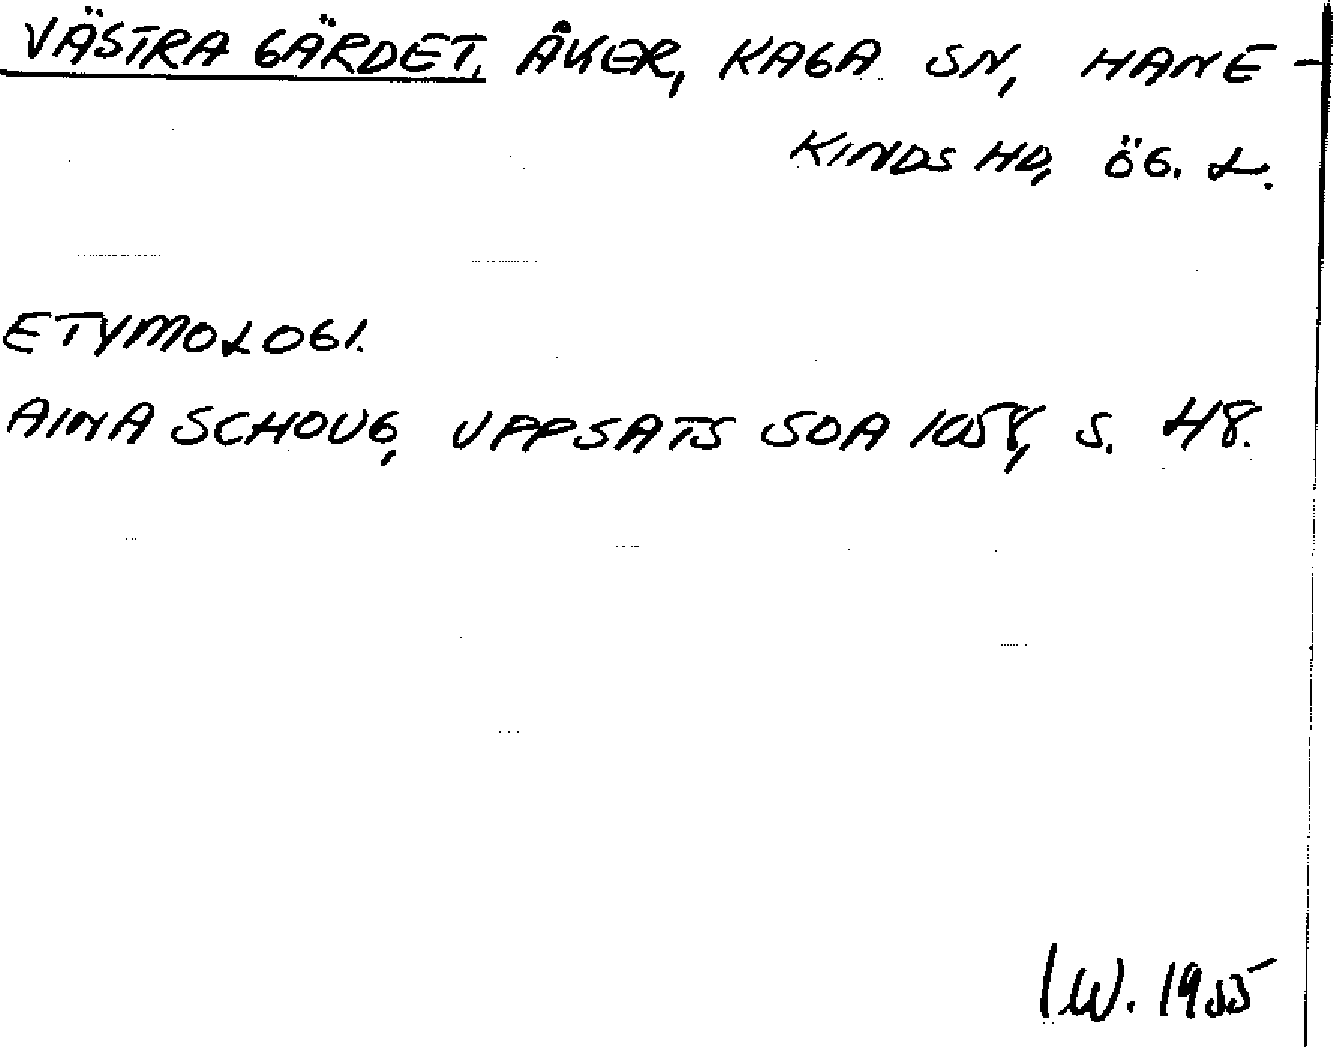 VÄSTRA GÄRDET, ÅKER, KAGA SN, HANE-
KINDS HD, ÖG. L.
ETYMOLOGI.
AINA SCHOUG, UPPSATS SOA 1058, S. 48.
I.W. 1955